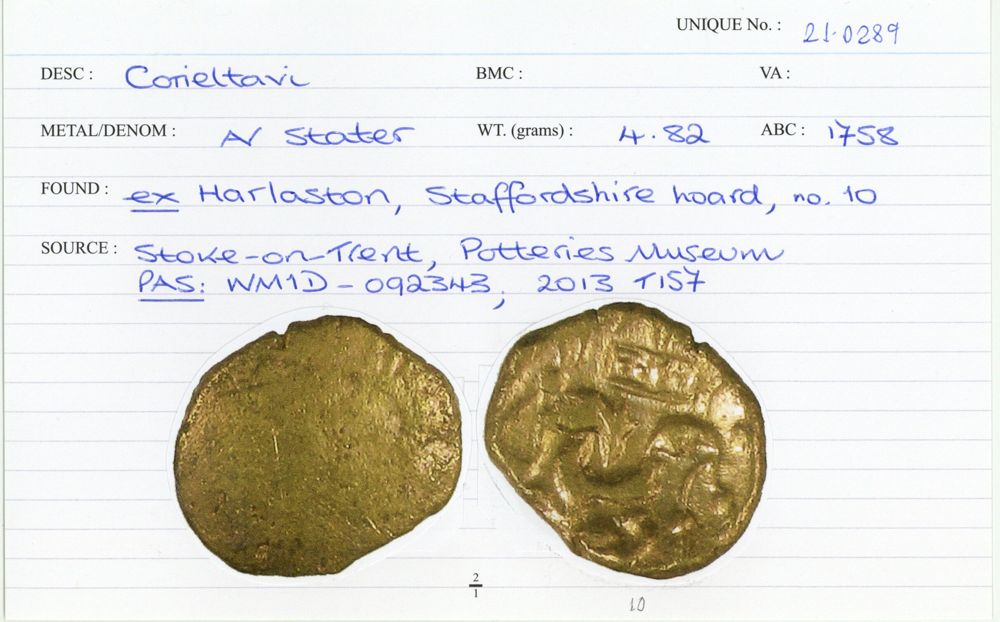 UNIQUE No. : 21.0289
DESC : Corieltavi BMC : VA :
METAL/DENOM : AV Stater WT. (grams) : 4.82 ABC : 1758
FOUND : ex Harlaston, Staffordshire hoard, no. 10
SOURCE : Stoke-on-Trent, Potteries Museum
PAS: WM1D-092343, 2013 T157
2/1
10